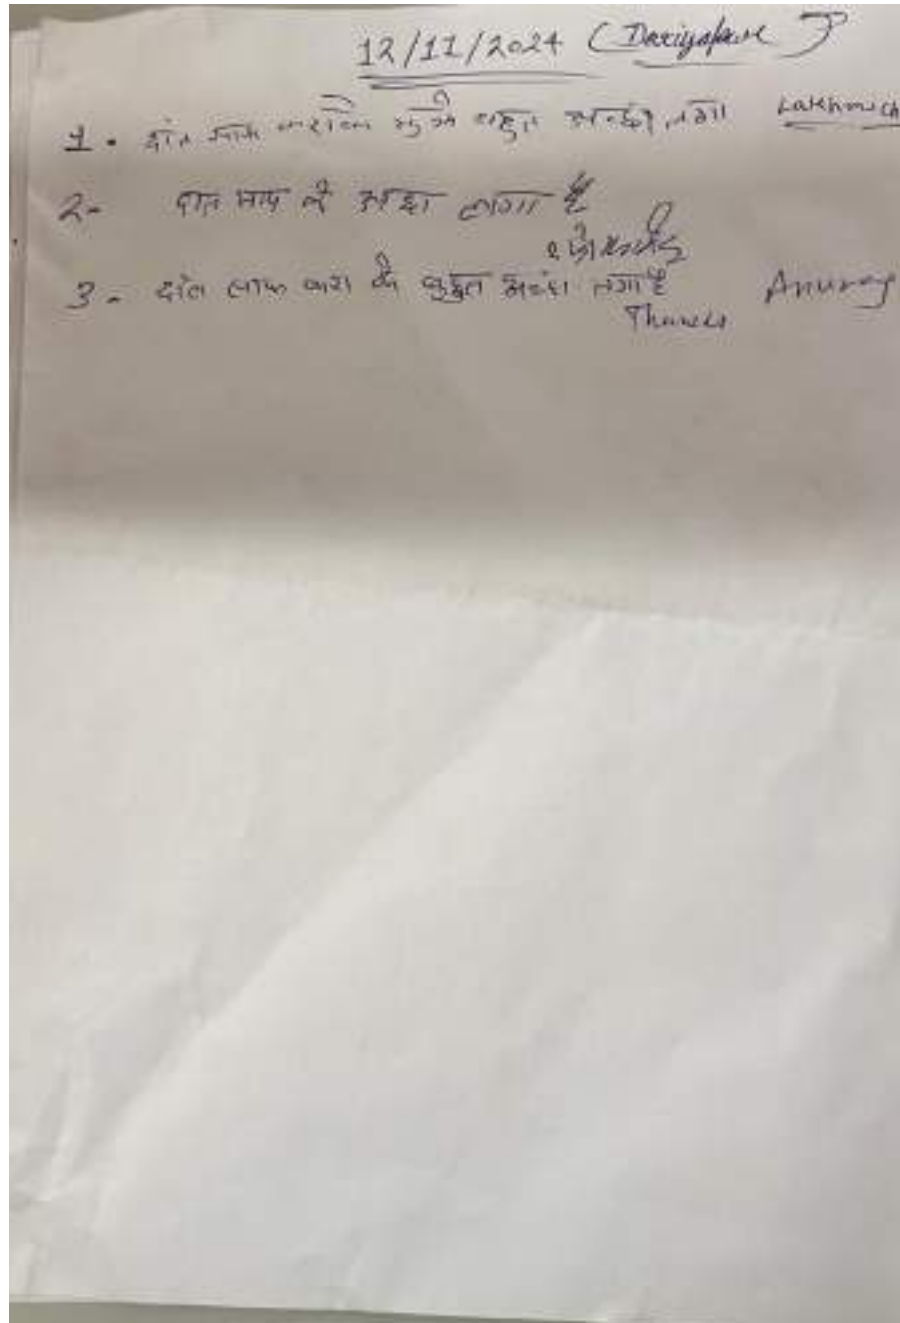 12/11/2024 (Dariyapur)
1. दांत साफ कराके मुझे बहुत अच्छा लगा Lakhmich
2- दात साफ से अच्छा लगा है
3- दांत साफ करा के बहुत अच्छा लगा है Anurag
Thanks